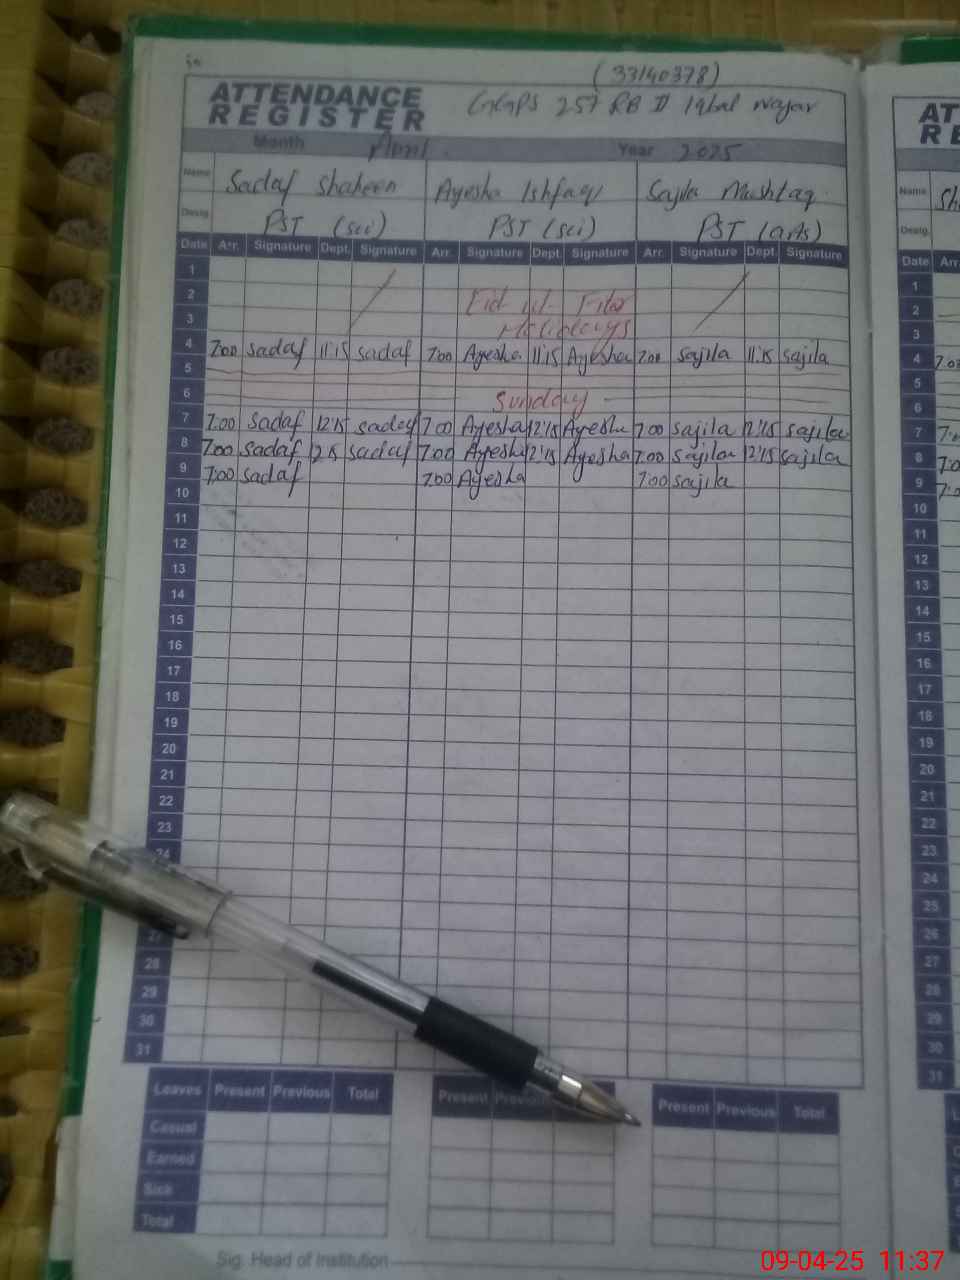 (33140378)
ATTENDANCE REGISTER
GGPS 257 RB II Iqbal Nagar
Month April Year 2025
Name Sadaf Shaheen Ayesha Ishfaq Sajila Mushtaq
Desig. PST (sci) PST (sci) PST (arts)
Date Arr. Signature Dept. Signature Arr. Signature Dept. Signature Arr. Signature Dept. Signature
1
2 Eid ul-Fiter
3 Holidays
4 7:00 Sadaf 11:15 Sadaf 7:00 Ayesha 11:15 Ayesha 7:00 Sajila 11:15 Sajila
5
6 Sunday
7 7:00 Sadaf 12:15 Sadaf 7:00 Ayesha 12:15 Ayesha 7:00 Sajila 12:15 Sajila
8 7:00 Sadaf 12:15 Sadaf 7:00 Ayesha 12:15 Ayesha 7:00 Sajila 12:15 Sajila
9 7:00 Sadaf 7:00 Ayesha 7:00 Sajila
10
11
12
13
14
15
16
17
18
19
20
21
22
23
24
27
28
29
30
31
Leaves Present Previous Total Present Previous Present Previous Total
Casual
Earned
Sick
Total
Sig. Head of Institution
AT
RE
Name Sh
Desig.
Date Arr.
1
2
3
4
5
6
7
8
9
10
11
12
13
14
15
16
17
18
19
20
21
22
23
24
25
26
27
28
29
30
31
09-04-25 11:37